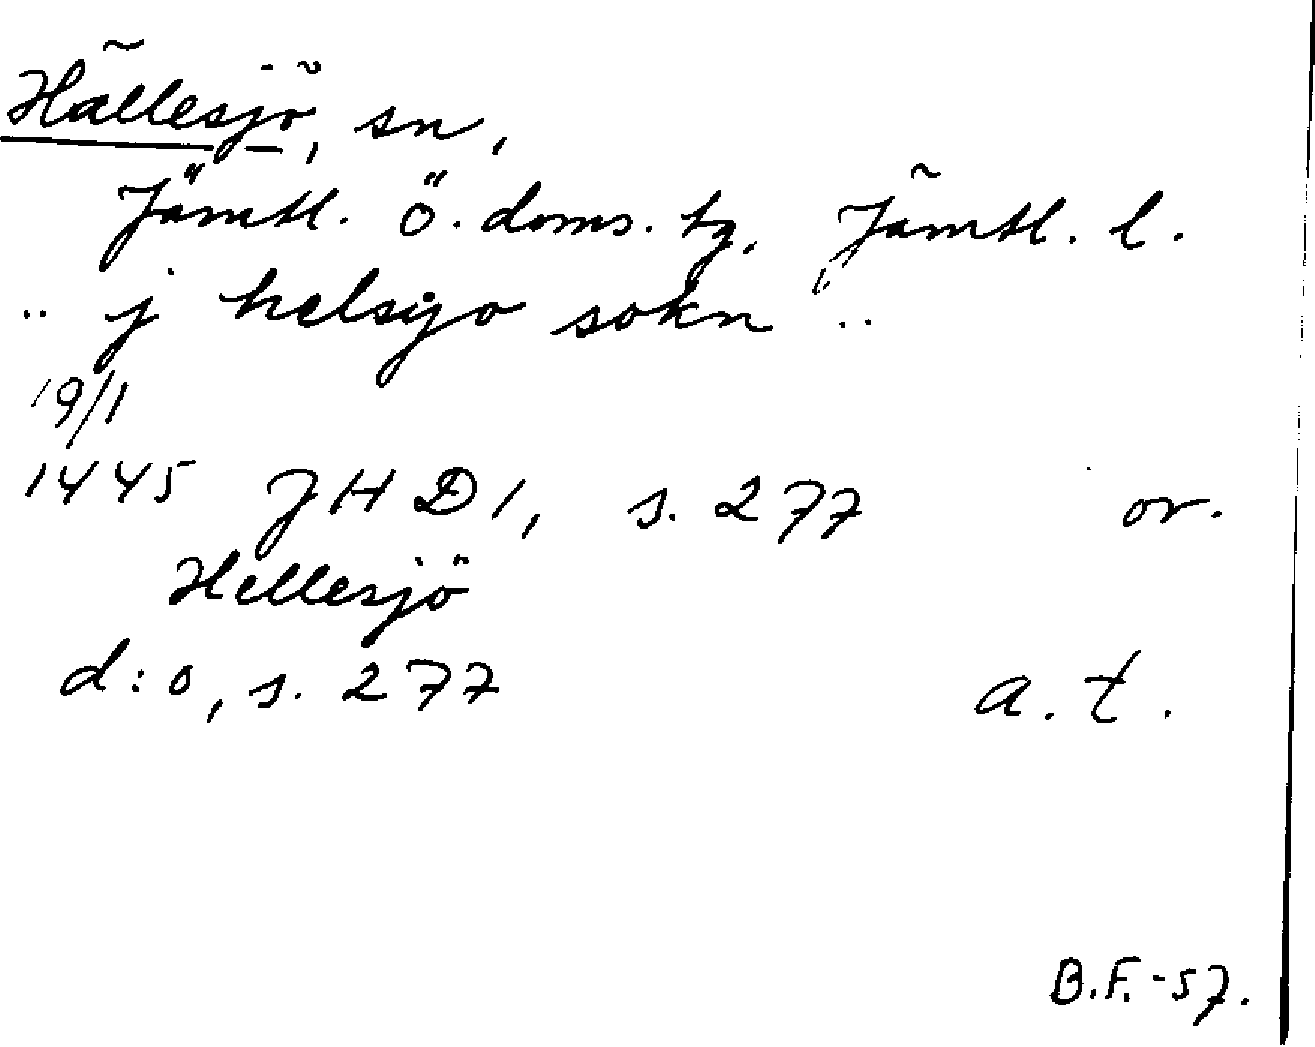 Hällesjö, sn,
Jämtl. ö. doms. tg, Jämtl. l.
.. j helsyo sokn ..
19/1
1445 JHD 1, s. 277 or.
Hellesjö
d:o, s. 277 a.t.
B.F.-57.